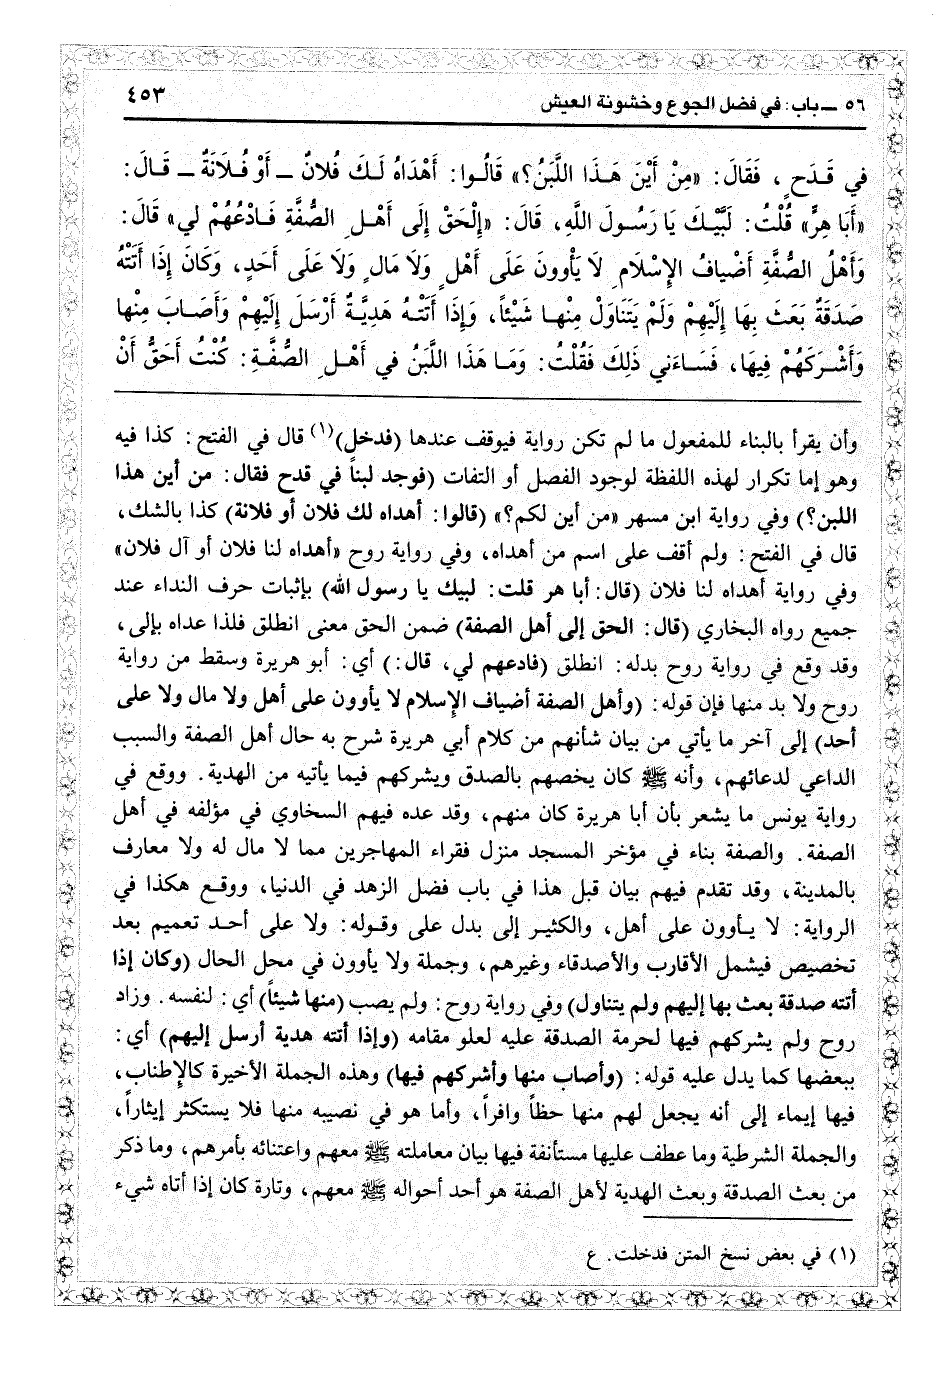 ٥٦ ــ باب: في فضل الجوع وخشونة العيش
٤٥٣
فِي قَدَحٍ، فَقَالَ: «مِنْ أَيْنَ هَذَا اللَّبَنُ؟» قَالُوا: أَهْدَاهُ لَكَ فُلَانٌ ــ أَوْ فُلَانَةٌ ــ قَالَ:
«أَبَا هِرٍّ» قُلْتُ: لَبَّيْكَ يَا رَسُولَ اللَّهِ، قَالَ: «إِلْحَقْ إِلَى أَهْلِ الصُّفَّةِ فَادْعُهُمْ لي» قَالَ:
وَأَهْلُ الصُّفَّةِ أَضْيَافُ الإِسْلَامِ لَا يَأْوونَ عَلَى أَهْلٍ وَلَا مَالٍ وَلَا عَلَى أَحَدٍ، وَكَانَ إِذَا أَتَتْهُ
صَدَقَةٌ بَعَثَ بِهَا إِلَيْهِمْ وَلَمْ يَتَنَاوَلْ مِنْهَا شَيْئاً، وَإِذَا أَتَتْهُ هَدِيَّةٌ أَرْسَلَ إِلَيْهِمْ وَأَصَابَ مِنْها
وَأَشْرَكَهُمْ فِيهَا، فَسَاءَني ذَلِكَ فَقُلْتُ: وَمَا هَذَا اللَّبَنُ في أَهْلِ الصُّفَّةِ: كُنْتُ أَحَقُّ أَنْ
وأن يقرأ بالبناء للمفعول ما لم تكن رواية فيوقف عندها (فدخل)(١) قال في الفتح: كذا فيه
وهو إما تكرار لهذه اللفظة لوجود الفصل أو التفات (فوجد لبناً في قدح فقال: من أين هذا
اللبن؟) وفي رواية ابن مسهر «من أين لكم؟» (قالوا: أهداه لك فلان أو فلانة) كذا بالشك،
قال في الفتح: ولم أقف على اسم من أهداه، وفي رواية روح «أهداه لنا فلان أو آل فلان»
وفي رواية أهداه لنا فلان (قال: أبا هر قلت: لبيك يا رسول الله) بإثبات حرف النداء عند
جميع رواه البخاري (قال: الحق إلى أهل الصفة) ضمن الحق معنى انطلق فلذا عداه بإلى،
وقد وقع في رواية روح بدله: انطلق (فادعهم لي، قال:) أي: أبو هريرة وسقط من رواية
روح ولا بد منها فإن قوله: (وأهل الصفة أضياف الإسلام لا يأوون على أهل ولا مال ولا على
أحد) إلى آخر ما يأتي من بيان شأنهم من كلام أبي هريرة شرح به حال أهل الصفة والسبب
الداعي لدعائهم، وأنه ﷺ كان يخصهم بالصدق ويشركهم فيما يأتيه من الهدية. ووقع في
رواية يونس ما يشعر بأن أبا هريرة كان منهم، وقد عده فيهم السخاوي في مؤلفه في أهل
الصفة. والصفة بناء في مؤخر المسجد منزل فقراء المهاجرين مما لا مال له ولا معارف
بالمدينة، وقد تقدم فيهم بيان قبل هذا في باب فضل الزهد في الدنيا، ووقع هكذا في
الرواية: لا يأوون على أهل، والكثير إلى بدل على وقوله: ولا على أحد تعميم بعد
تخصيص فيشمل الأقارب والأصدقاء وغيرهم، وجملة ولا يأوون في محل الحال (وكان إذا
أتته صدقة بعث بها إليهم ولم يتناول) وفي رواية روح: ولم يصب (منها شيئاً) أي: لنفسه. وزاد
روح ولم يشركهم فيها لحرمة الصدقة عليه لعلو مقامه (وإذا أتته هدية أرسل إليهم) أي:
ببعضها كما يدل عليه قوله: (وأصاب منها وأشركهم فيها) وهذه الجملة الأخيرة كالإطناب،
فيها إيماء إلى أنه يجعل لهم منها حظاً وافراً، وأما هو في نصيبه منها فلا يستكثر إيثاراً،
والجملة الشرطية وما عطف عليها مستأنفة فيها بيان معاملته ﷺ معهم واعتنائه بأمرهم، وما ذكر
من بعث الصدقة وبعث الهدية لأهل الصفة هو أحد أحواله ﷺ معهم، وتارة كان إذا أتاه شيء
(١) في بعض نسخ المتن فدخلت. ع